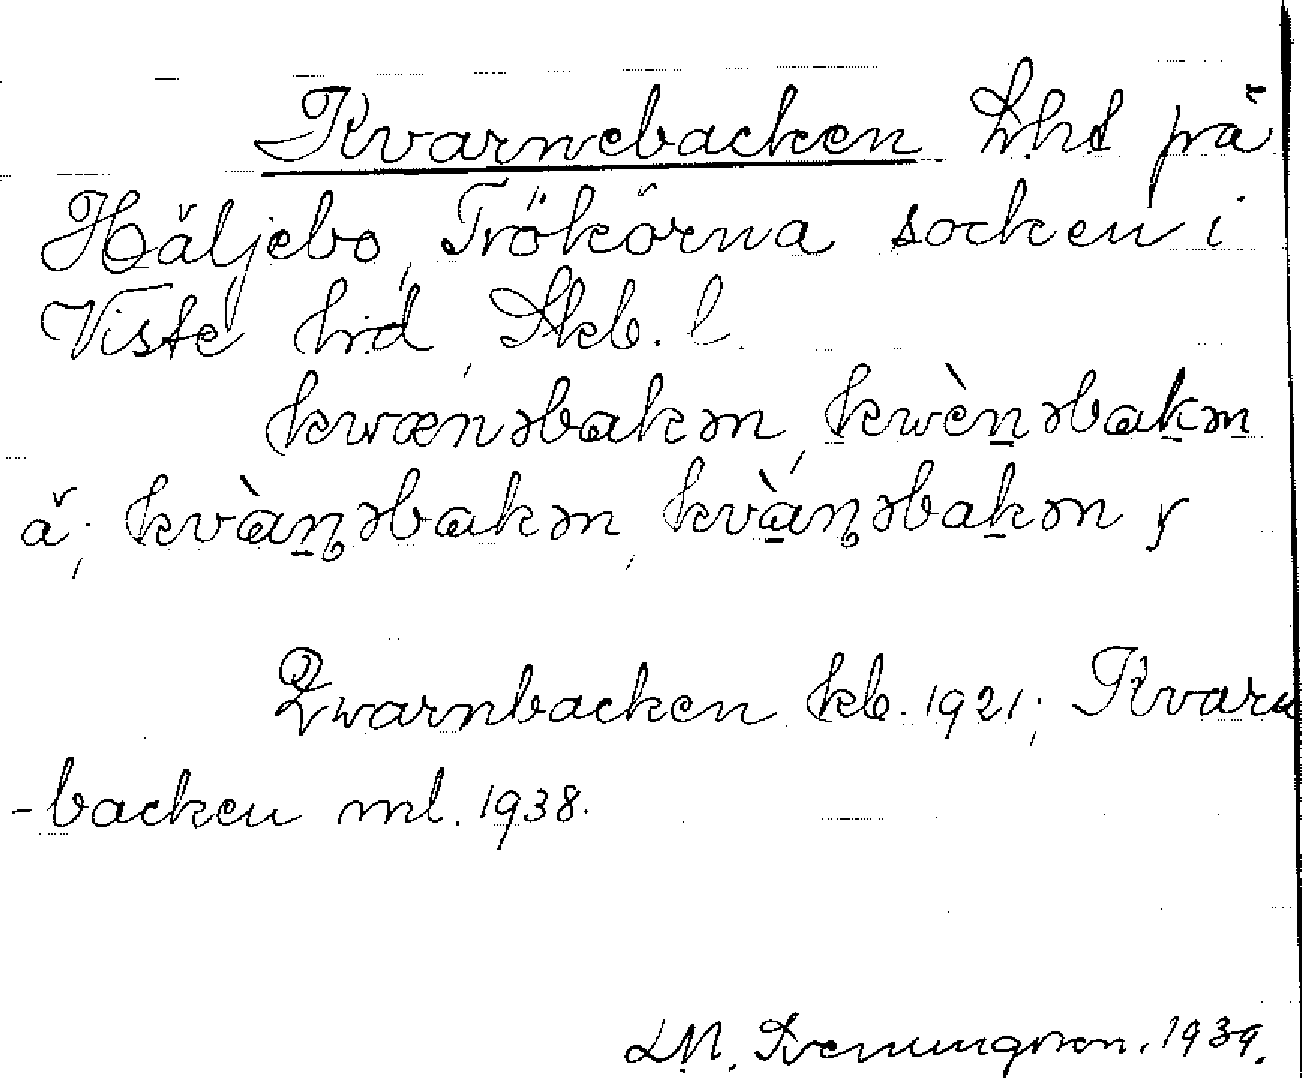 Kvarnebacken lht på
Häljebo, Trökörna socken i
Viste hrd, Skb. l.
kwænəbakən, kwènəbakən
ä; kvànəbakən, kvànəbakən y
Qwarnbacken kb. 1921; Kvarn
-backen ml. 1938.
LM. Svenungsson. 1939.